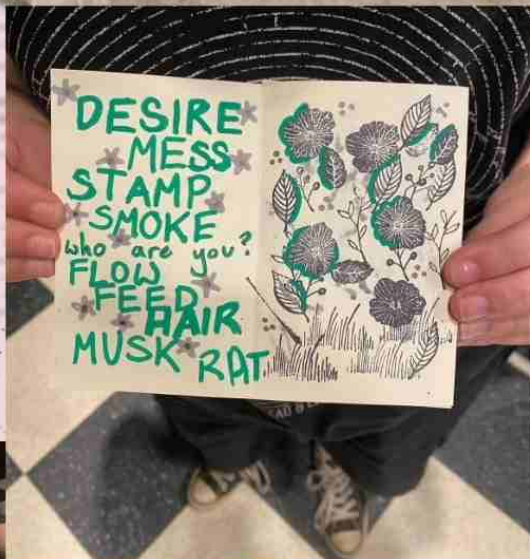 DESIRE
MESS
STAMP
SMOKE
who are you?
FLOW
FEED
HAIR
MUSK RAT